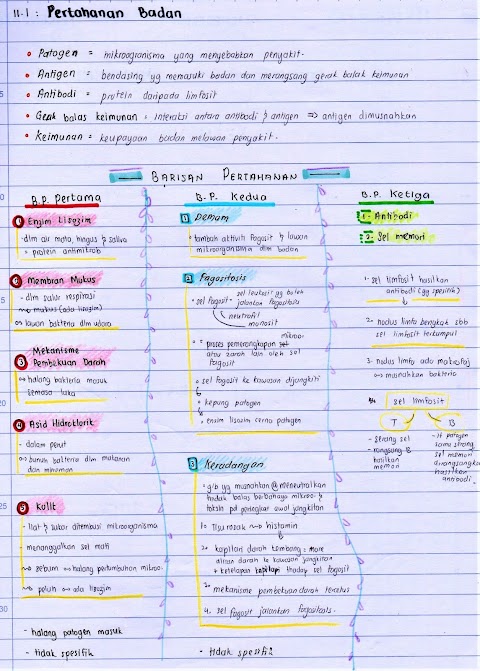 11.1 : Pertahanan Badan
• Patogen = mikroogranisma yang menyebabkan penyakit.
• Antigen = bendasing yg memasuki badan dan merangsang gerak balak keimunan
• Antibodi = protein daripada limfosit
• Gerak balas keimunan = interaksi antara antibodi & antigen => antigen dimusnahkan
• Keimunan = keupayaan badan melawan penyakit.
BARISAN PERTAHANAN
B.P. Pertama
1 Enzim Lisozim
- dlm air mata, hingus & saliva
↳ protein antimikrob
2 Membran Mukus
- dlm salur respirasi
↳ mukus (ada lisozim)
↳ lawan bakteria dlm udara
3 Mekanisme
Pembekuan Darah
↳ halang bakteria masuk
semasa luka
4 Asid Hidroklorik
- dalam perut
↳ bunuh bakteria dlm makanan
dan minuman
5 Kulit
- liat & sukar ditembusi mikroorganisma
- menanggalkan sel mati
↳ sebum ↳ halang pertumbuhan mikroo.
↳ peluh ↳ ada lisozim
- halang patogen masuk
- tidak spesifik
B.P. Kedua
1 Demam
↳ tambah aktiviti fagosit & lawan
mikroorganisma dlm badan
2 Fagositosis
• sel fagosit - sel leukosit yg boleh
jalankan fagositosis
neutrofil
monosit
• = proses pemerangkapan mikroo-
atau zarah lain oleh sel
fagosit
• sel fagosit ke kawasan dijangkiti
• kepung patogen
• enzim lisozim cerna patogen
3 Keradangan
• g/b yg musnahkan @ meneutralkan
tindak balas berbahaya mikroo &
toksin pd peringkat awal jangkitan
1. Tisu rosak ~> histamin
2. kapilari darah kembang : more
aliran darah ke kawasan jangkitan
+ ketelapan kapilari thadap sel fagosit
3. mekanisme pembekuan darah tercetus
4. sel fagosit jalankan fagositosis.
- tidak spesifik
B.P. Ketiga
1- Antibodi
2- Sel memori
1. sel limfosit hasilkan
antibodi (yg spesifik)
2. nodus limfa bengkak sbb
sel limfosit terkumpul
3. nodus limfa ada makrofaj
↳ musnahkan bakteria
sel limfosit
T B
- serang sel
- rangsang B
hasilkan
memori
- if patogen
sama serang
sel memori
dirangsangkan
hasilkan
antibodi.